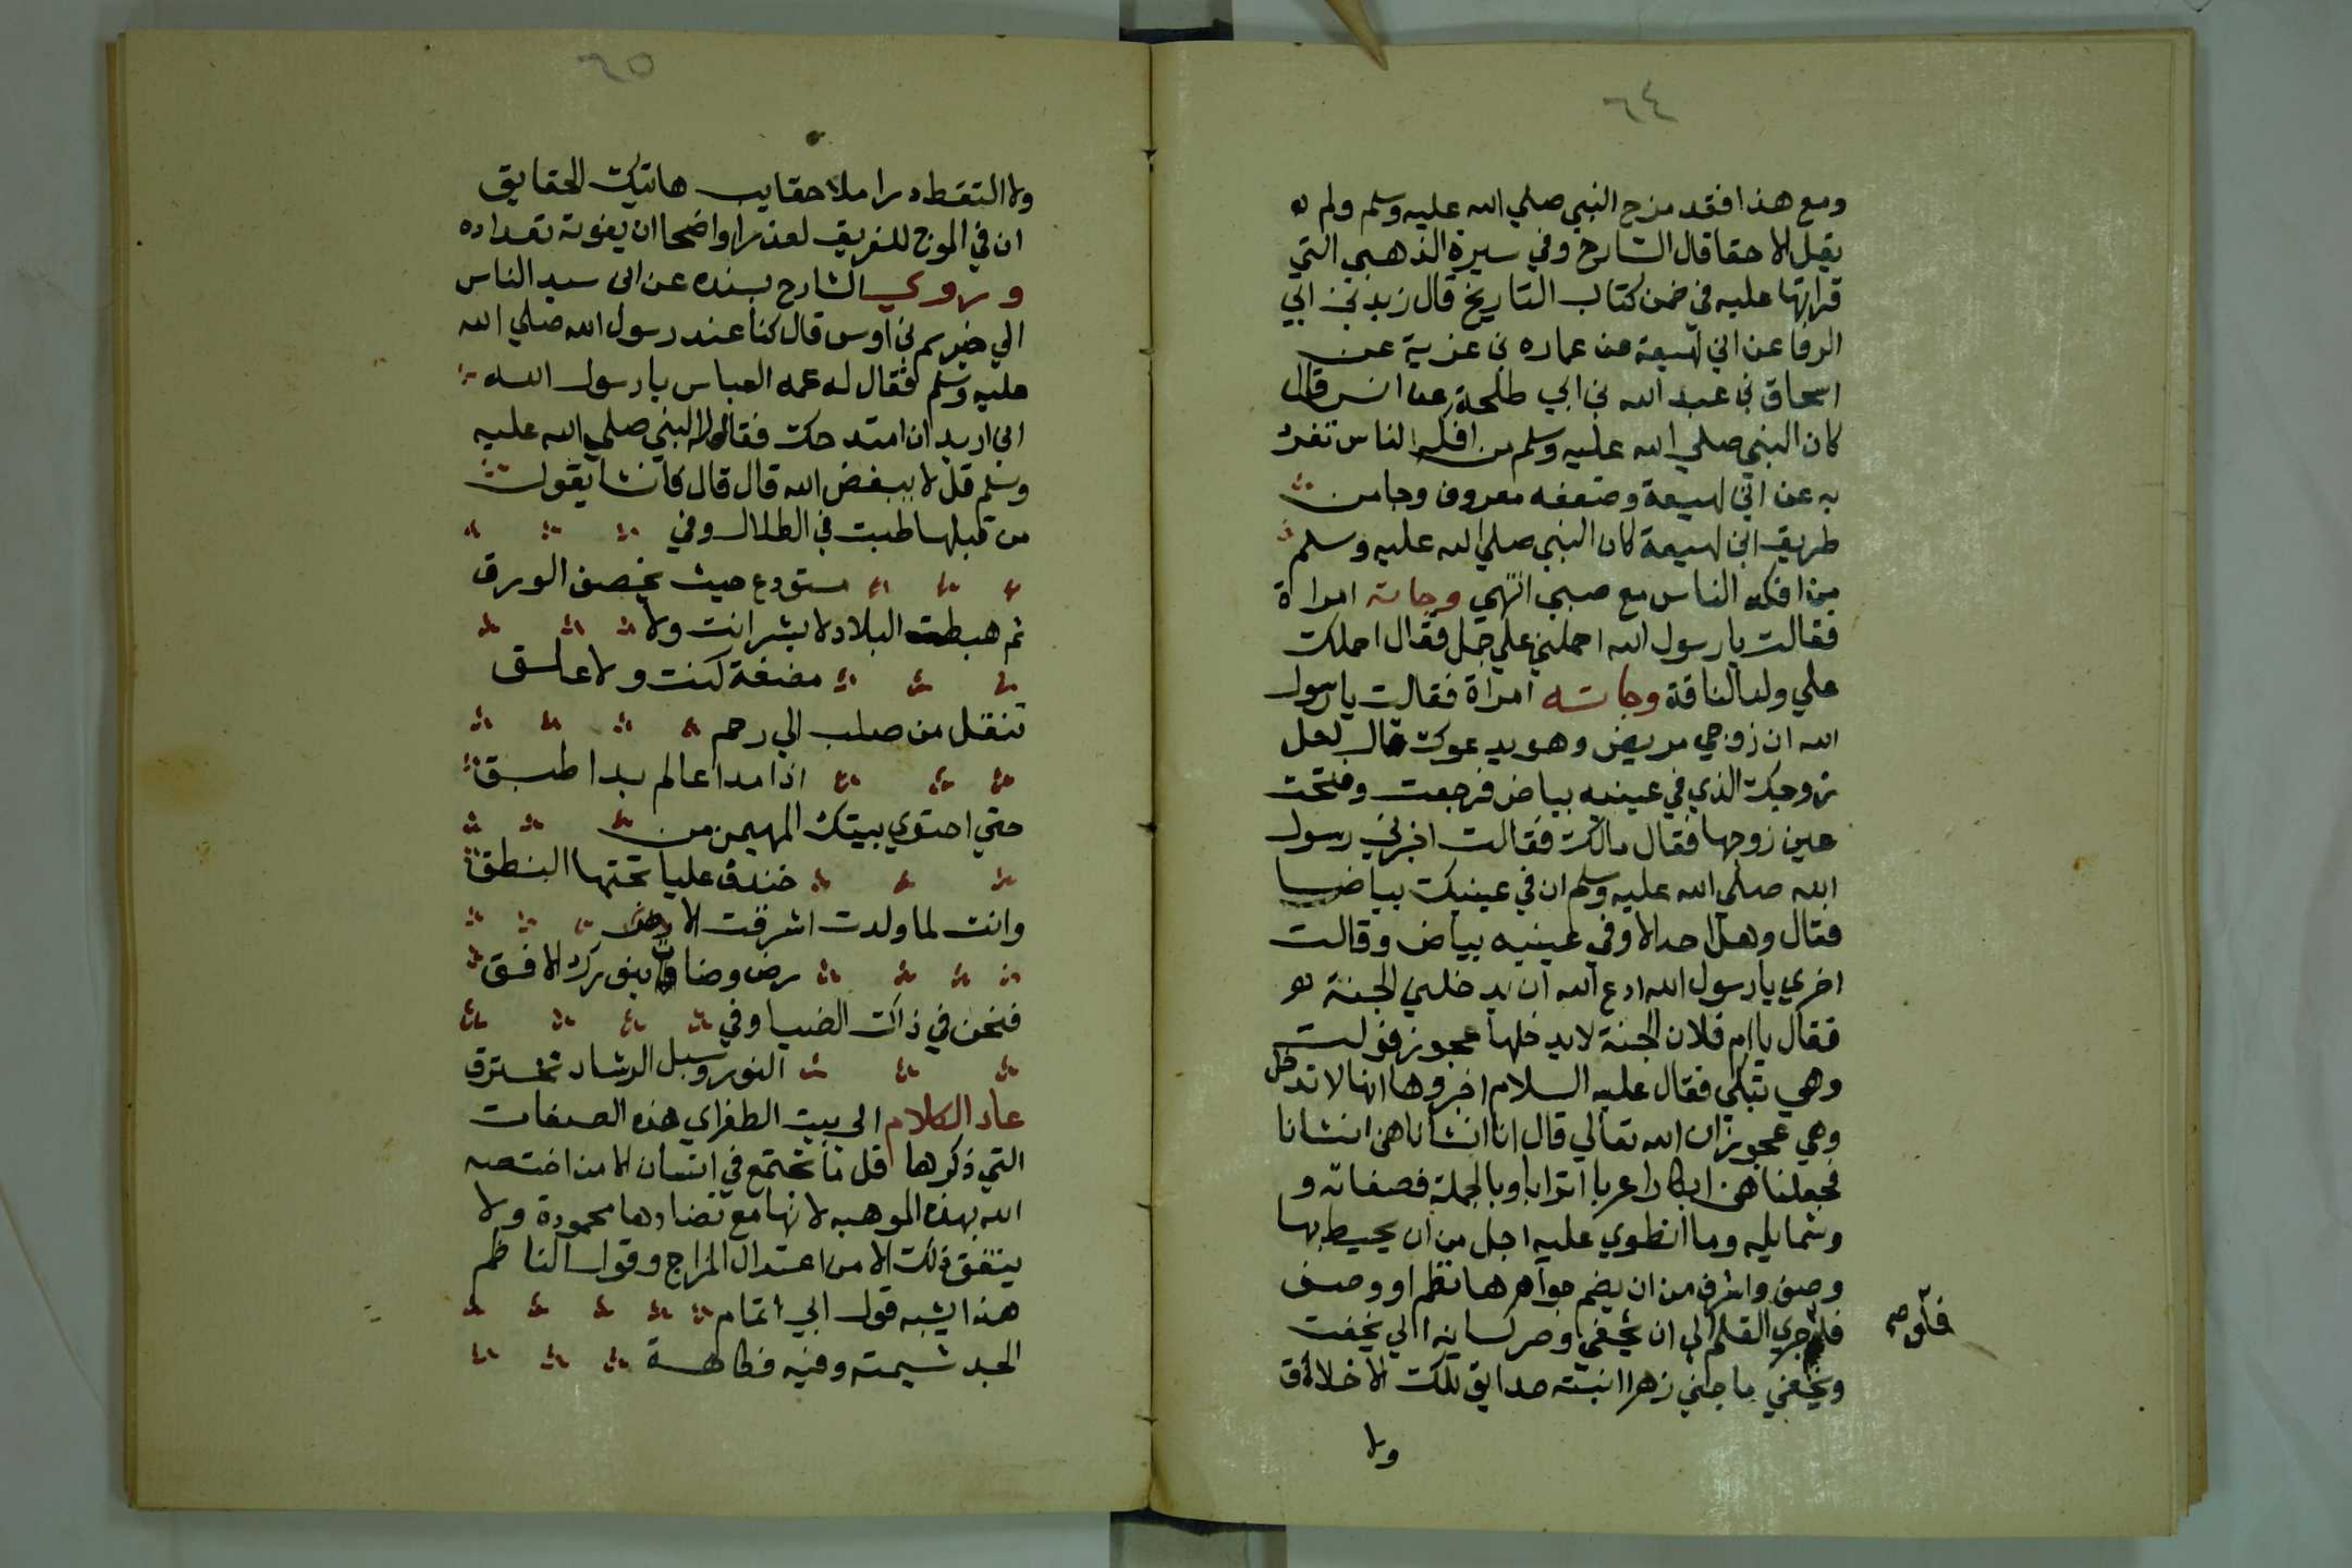 ٦٤
ومع هذا فقد مزح النبي صلي الله عليه وسلم ولم
يقل الا حقا قال الشارح وفي سيرة الذهبي التي
قراتها عليه في ضمن كتاب التاريخ قال زيد بن ابي
الرقا عن ابن لهيعة عن عماره بن عزية عن
اسحاق بن عبد الله بن ابي طلحة عن انس قال
كان النبي صلي الله عليه وسلم من افكه الناس تفرد
به عن ابن لهيعة وضعفه معروف وجا من
طريق ابن لهيعة كان النبي صلي الله عليه وسلم
من افكه الناس مع صبي انتهي وجاته امراة
فقالت يا رسول الله احملني علي جمل فقال احملك
علي ولد الناقة وجاته امراة فقالت يا رسول
الله ان زوجي مريض وهو يدعوك قال لعل
زوجك الذي في عينيه بياض فرجعت وفتحت
عين زوجها فقال مالك فقالت اخبرني رسول
الله صلي الله عليه وسلم ان في عينيك بياضا
فقال وهل احد الا وفي عينيه بياض وقالت
اخري يا رسول الله ادع الله ان يدخلني الجنة
فقال يا ام فلان الجنة لا يدخلها عجوز فولت
وهي تبكي فقال عليه السلام اخبروها انها لا تدخل
وهي عجوز ان الله تعالي قال انا انشاناهن انشانا
فجعلناهن ابكارا عربا اترابا وبالجملة فصفاته و
وشمايله وما انطوي عليه اجل من ان يحيط بها
وصف واشرف من ان يضم جواهرها نظم او وصف
فلو جري القلم الي ان يحفي وصر لسانه الي يخفت
ويخفي ما جني زهرا انبته حدايق تلك الاخلاق
فلو صح
ولا
٦٥
ولا التقط درا ملا حقايب هاتيك الحقايق
ان في الموج للغريق لعذرا واضحا ان يفوته تعداده
وروي الشارح بسنده عن ابن سيد الناس
الي خريم بن اوس قال كنا عند رسول الله صلي الله
عليه وسلم فقال له عمه العباس يا رسول الله
اني اريد ان امتدحك فقال له النبي صلي الله عليه
وسلم قل لا يفضض الله قال قال فانشا يقول
من قبلها طبت في الظلال وفي
مستودع حيث يخصف الورق
ثم هبطت البلاد لا بشر انت ولا
مضغة كنت ولا علق
تنقل من صلب الي رحم
اذا مدا عالم بدا طبق
حتي احتوي بيتك المهيمن من
خندف عليا تحتها النطق
وانت لما ولدت اشرقت الا
رض وضات بنورك الافق
فنحن في ذاك الضيا وفي
النور وسبل الرشاد تخترق
عاد الكلام الي بيت الطغراي هذه الصفات
التي ذكرها قل ما تجتمع في انسان الا من اختصه
الله بهذه الموهبه لانها مع تضادها محمودة ولا
يتفق ذلك الا من اعتدال المزاج وقول الناظم
هذا يشبه قول ابي اتمام
الجد شيمته وفيه فكاهة